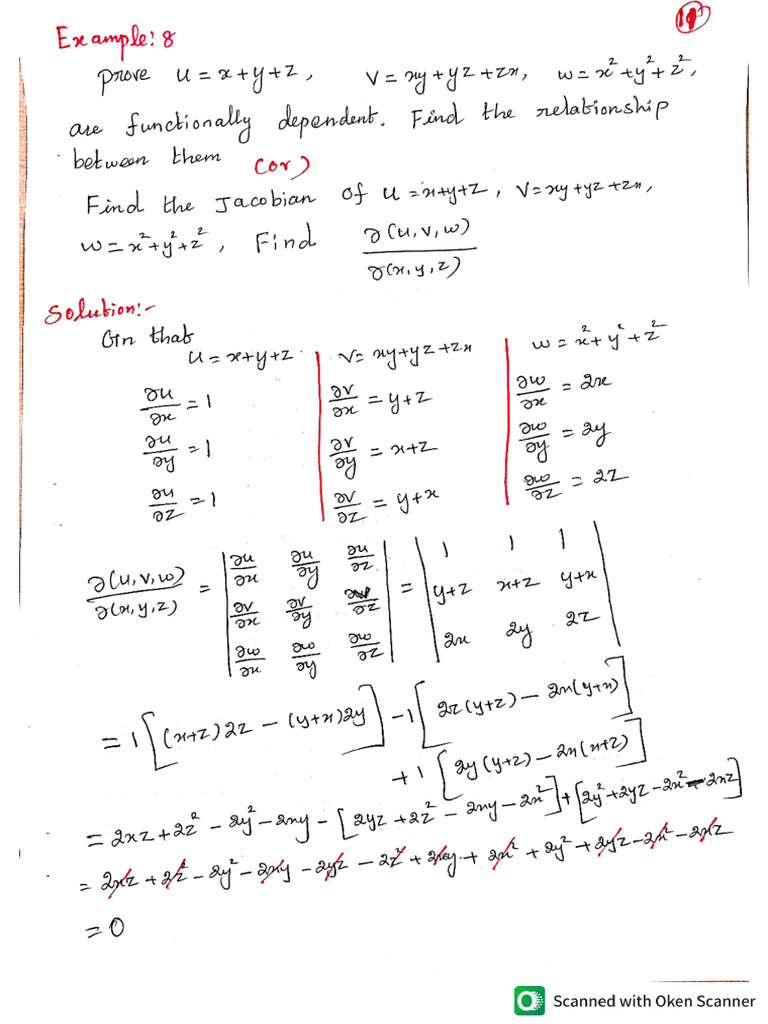 11
Example: 8
prove u = x+y+z, v = xy+yz+zx, w = x²+y²+z²,
are functionally dependent. Find the relationship
between them (or)
Find the Jacobian of u = x+y+z, v = xy+yz+zx,
w = x²+y²+z², Find ∂(u,v,w)/∂(x,y,z)
Solution:-
Gn that
u = x+y+z. | v = xy+yz+zx | w = x²+y²+z²
∂u/∂x = 1 | ∂v/∂x = y+z | ∂w/∂x = 2x
∂u/∂y = 1 | ∂v/∂y = x+z | ∂w/∂y = 2y
∂u/∂z = 1 | ∂v/∂z = y+x | ∂w/∂z = 2z
∂(u,v,w)/∂(x,y,z) = | ∂u/∂x ∂u/∂y ∂u/∂z ; ∂v/∂x ∂v/∂y ∂v/∂z ; ∂w/∂x ∂w/∂y ∂w/∂z | = | 1 1 1 ; y+z x+z y+x ; 2x 2y 2z |
= 1 [(x+z)2z - (y+x)2y] - 1 [2z(y+z) - 2x(y+x)]
+ 1 [2y(y+z) - 2x(x+z)]
= 2xz + 2z² - 2y² - 2xy - [2yz + 2z² - 2xy - 2x²] + [2y² + 2yz - 2x² - 2xz]
= 2xz + 2z² - 2y² - 2xy - 2yz - 2z² + 2xy + 2x² + 2y² + 2yz - 2x² - 2xz
= 0
Scanned with Oken Scanner